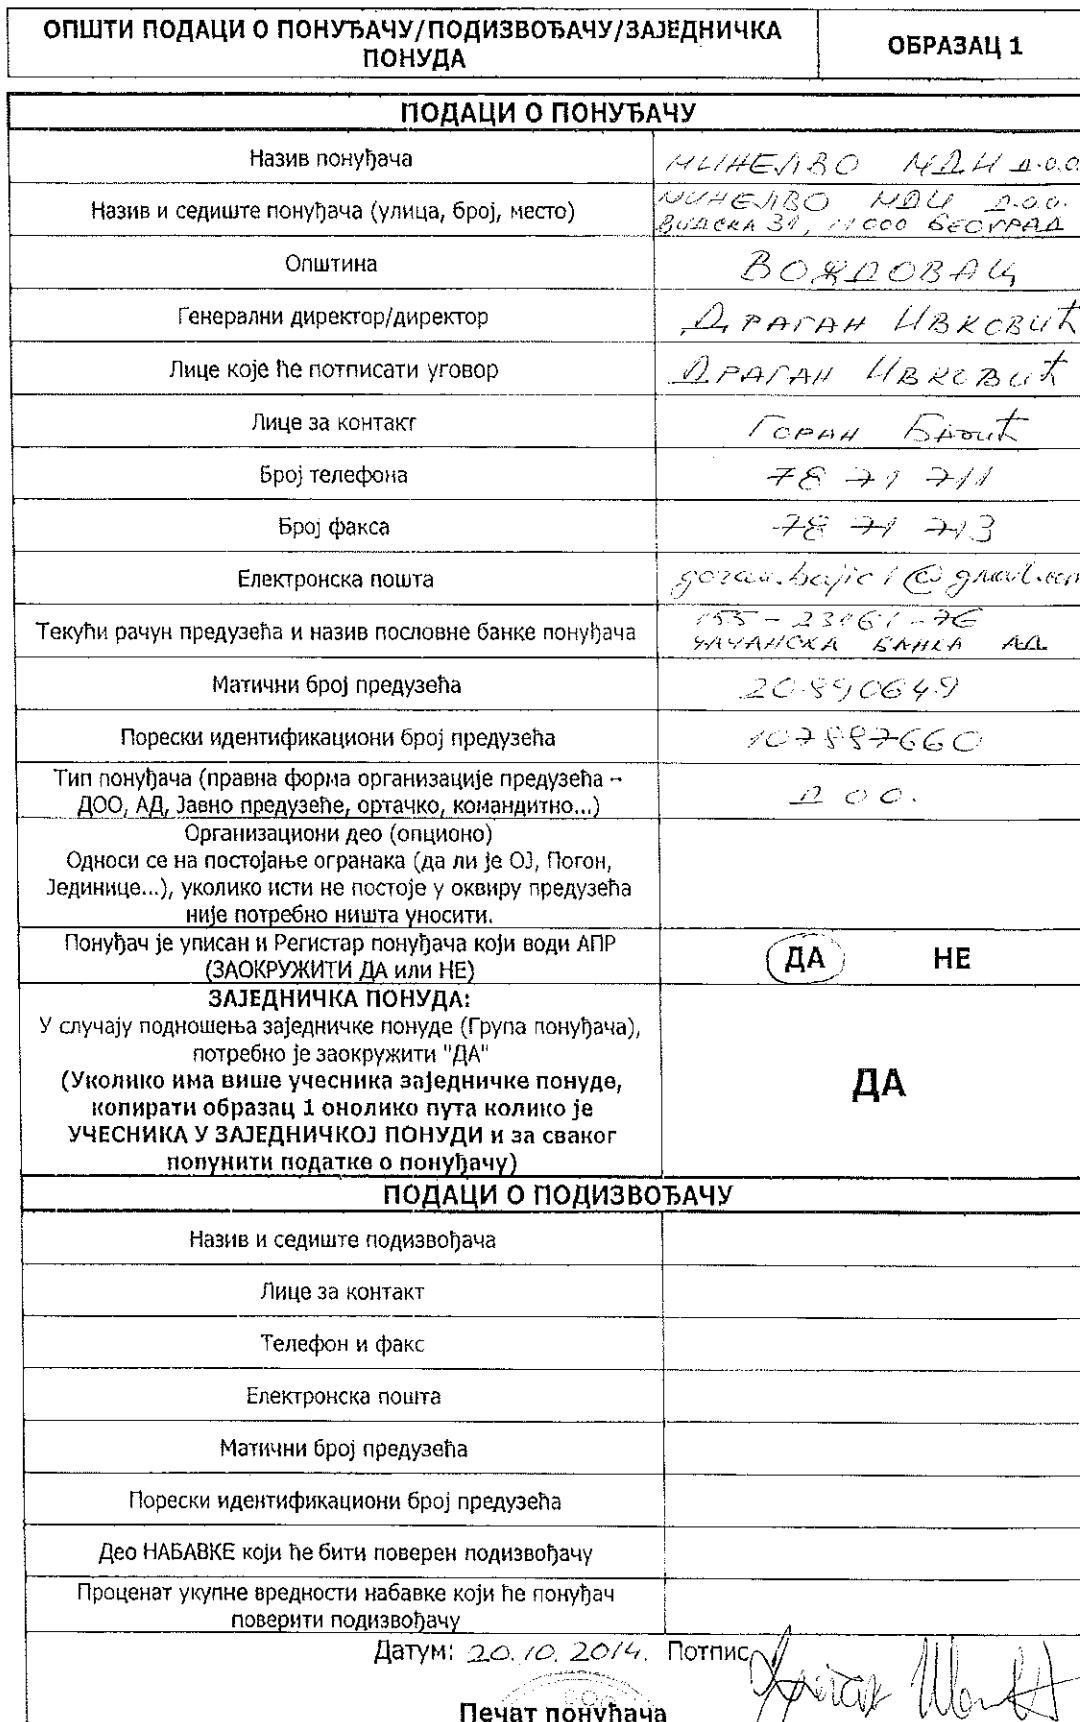 ОПШТИ ПОДАЦИ О ПОНУЂАЧУ/ПОДИЗВОЂАЧУ/ЗАЈЕДНИЧКА
ПОНУДА
ОБРАЗАЦ 1
ПОДАЦИ О ПОНУЂАЧУ
Назив понуђача
МИНЕЛВО МДИ д.о.о
Назив и седиште понуђача (улица, број, место)
МИНЕЛВО МДИ Д.О.О.
ВИДСКА 31, 11000 БЕОГРАД
Општина
ВОЖДОВАЦ
Генерални директор/директор
ДРАГАН ИВКОВИЋ
Лице које ће потписати уговор
ДРАГАН ИВКОВИЋ
Лице за контакт
ГОРАН
Број телефона
78 71 711
Број факса
78 71 713
Електронска пошта
goran.bajic1@gmail.com
Текући рачун предузећа и назив пословне банке понуђача
155-23161-76
ЧАЧАНСКА БАНКА АД
Матични број предузећа
20890649
Порески идентификациони број предузећа
107887660
Тип понуђача (правна форма организације предузећа –
ДОО, АД, Јавно предузеће, ортачко, командитно...)
Д О О.
Организациони део (опционо)
Односи се на постојање огранака (да ли је ОЈ, Погон,
Јединице...), уколико исти не постоје у оквиру предузећа
није потребно ништа уносити.
Понуђач је уписан и Регистар понуђача који води АПР
(ЗАОКРУЖИТИ ДА или НЕ)
ДА НЕ
ЗАЈЕДНИЧКА ПОНУДА:
У случају подношења заједничке понуде (Група понуђача),
потребно је заокружити "ДА"
(Уколико има више учесника заједничке понуде,
копирати образац 1 онолико пута колико је
УЧЕСНИКА У ЗАЈЕДНИЧКОЈ ПОНУДИ и за сваког
попунити податке о понуђачу)
ДА
ПОДАЦИ О ПОДИЗВОЂАЧУ
Назив и седиште подизвођача
Лице за контакт
Телефон и факс
Електронска пошта
Матични број предузећа
Порески идентификациони број предузећа
Део НАБАВКЕ који ће бити поверен подизвођачу
Проценат укупне вредности набавке који ће понуђач
поверити подизвођачу
Датум: 20.10.2014. Потпис
Печат понуђача